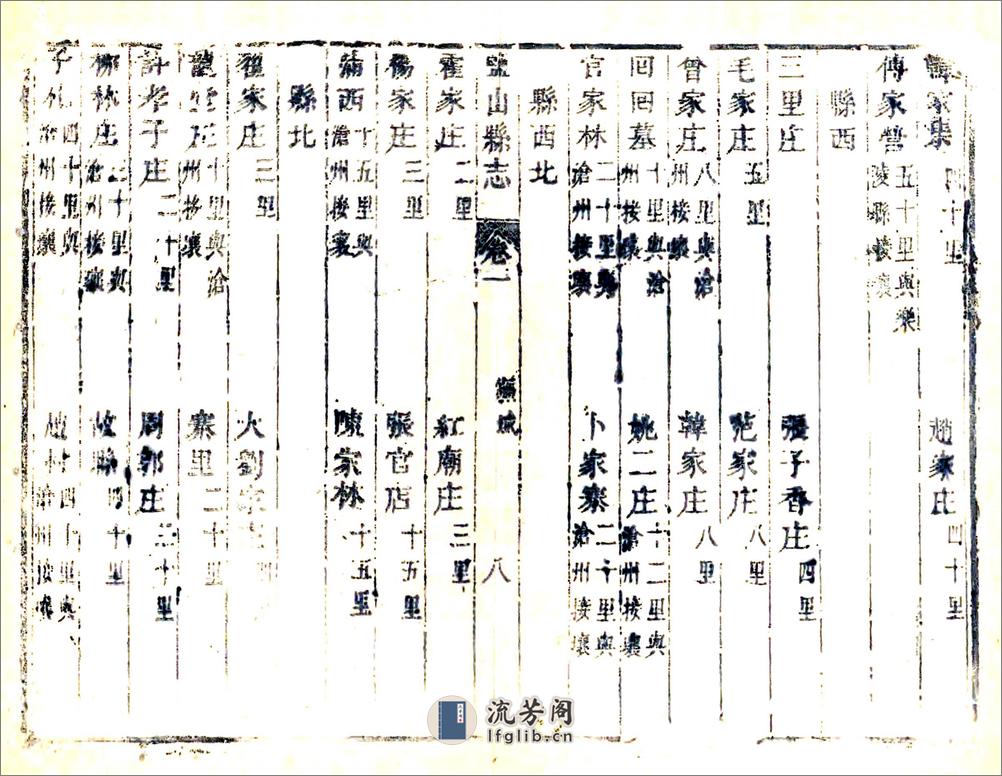 韓家集四十里 趙家庄四十里
傅家營五十里與樂陵縣接壤
縣西
三里庄 張子香庄四里
毛家庄五里 范家庄八里
曾家庄八里與滄州接壤 韓家庄八里
回回墓十里與滄州接壤 姚二庄十二里與滄州接壤
官家林二十里與滄州接壤 卜家寨二十里與滄州接壤
縣西北
鹽山縣志 卷一 八
霍家庄二里 紅廟庄三里
楊家庄三里 張官店十五里
蒲西十五里與滄州接壤 陳家林十五里
縣北
翟家庄三里 大劉家庄
十里與滄州接壤 寨里二十里
許孝子庄二十里 周郭庄三十里
柳林庄三十里與滄州接壤 故縣四十里
四十里與滄州接壤 趙村四十里與滄州接壤
流芳阁
lfglib.cn